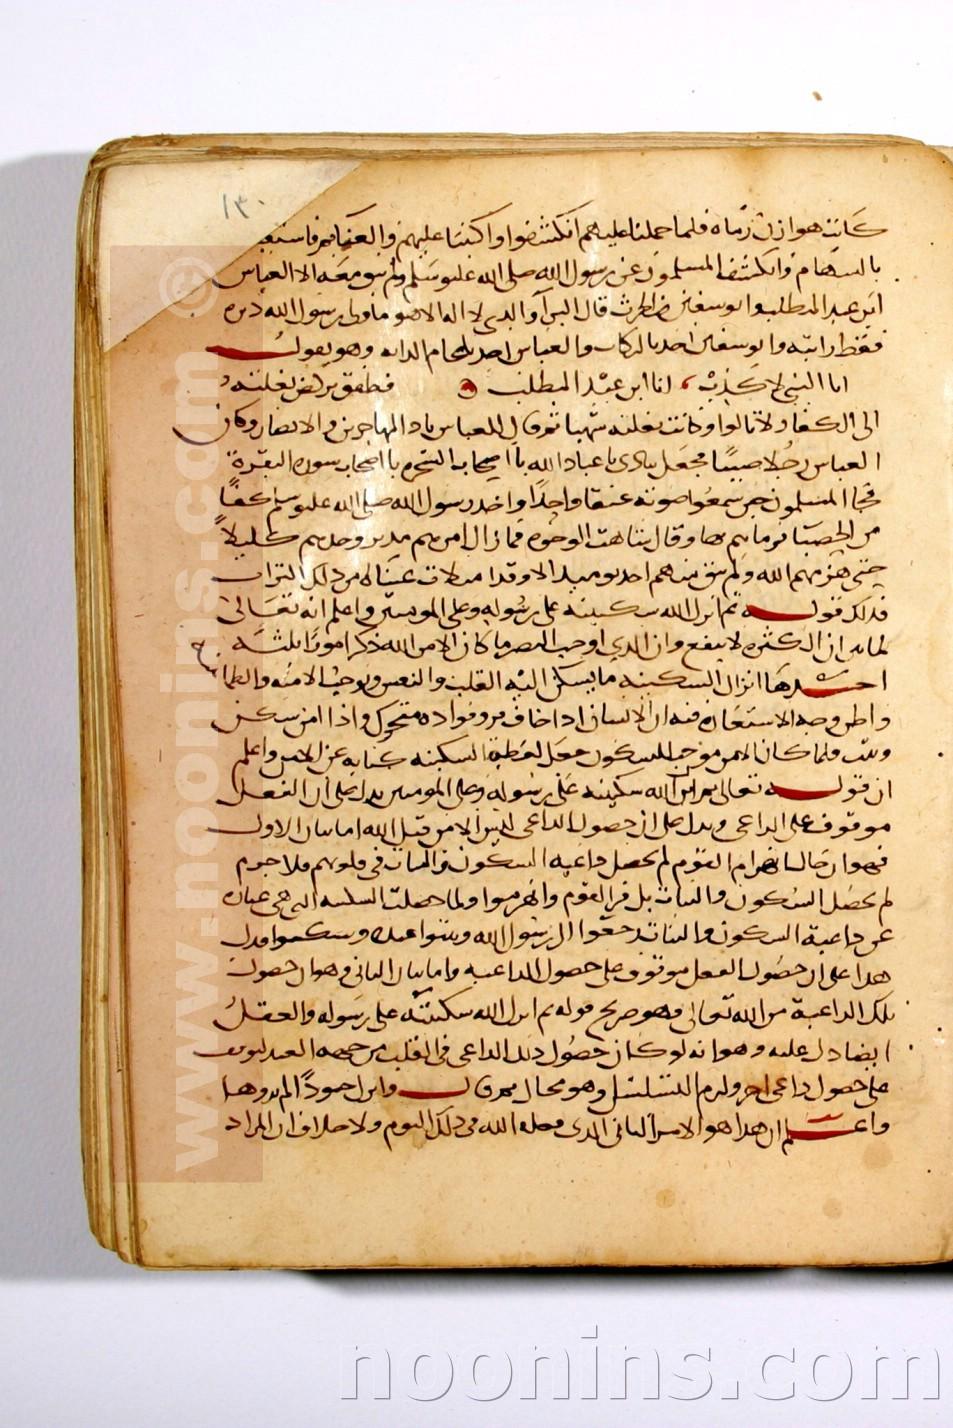 ١٣٠
كانت هوازن رماة فلما حملنا عليهم انكشفوا واكببنا على الغنايم فاستقبلونا
بالسهام وانكشف المسلمون عن رسول الله صلى الله عليه وسلم ولم يبق معه الا العباس
ابن عبد المطلب وابو سفين بن الحرث قال البرآ والذى لا اله الا هو ما ولى رسول الله دبره
فقط رايته وابو سفين اخذ بالركاب والعباس اخذ بلجام الدابه وهو يقول
انا النبى لا كذب انا ابن عبد المطلب فطفق يركض بغلته
الى الكفار لا يالوا وكانت بغلته شهبا ثم قال للعباس ناد المهاجرين والانصار وكان
العباس رجلا صيتا فجعل ينادى يا عباد الله يا اصحاب الشجره يا اصحاب سورة البقرة
فجا المسلمون حين سمعوا صوته عنقا واحدًا واخذ رسول الله صلى الله عليه وسلم كفًا
من الحصبا فرماهم بها وقال شاهت الوجوه فما زال امرهم مدبر وحدهم كليلاً
حتى هزمهم الله ولم يبق منهم احد يوميذ الا وقد امتلات عيناه من ذلك التراب
فذلك قوله ثم انزل الله سكينته على رسوله وعلى المومنين واعلم انه تعالى
لما بين ان الكثره لا ينفع وان الذي اوجب النصر ما كان الا من الله ذكر امورًا ثلثه
احدها انزال السكينه ما يسكن اليه القلب والنفس ويوجب الامنه والطما
واظن وجه الاستعاره فيه ان الانسان اذا خاف فر وفواده متحرك واذا امن سكن
وثبت ولما كان الامن موجبا للسكون جعل لفظة السكينه كنايه عن الامن واعلم
ان قوله تعالى ثم انزل الله سكينته على رسوله وعلى المومنين يدل على ان الفعل
موقوف على الداعى ويدل على ان حصول الداعى ليس الا من قبل الله اما بيان الاول
فهو ان حال انهزام القوم لم يحصل داعيه السكون والثبات فى قلوبهم فلا جرم
لم يحصل السكون والثبات بل فر القوم وانهزموا ولما حصلت السكينه التى هى عباره
عن داعية السكون والثبات رجعوا الى رسول الله وثبتوا عنده وسكنوا فدل
هذا على ان حصول الفعل موقوف على حصول الداعيه واما بيان الثانى وهو ان حصول
تلك الداعية من الله تعالى فهو صريح قوله ثم انزل الله سكينته على رسوله والعقل
ايضا دل عليه وهو انه لو كان حصول ذلك الداعى فى القلب من جهه العبد لتوقف
على حصول داعى اخر ولزم التسلسل وهو محال ثم قال وانزل جنودًا لم تروها
واعلم ان هذا هو الامر الثانى الذى فعله الله فى ذلك اليوم ولا خلاف ان المراد
www.noonins.com ©
noonins.com